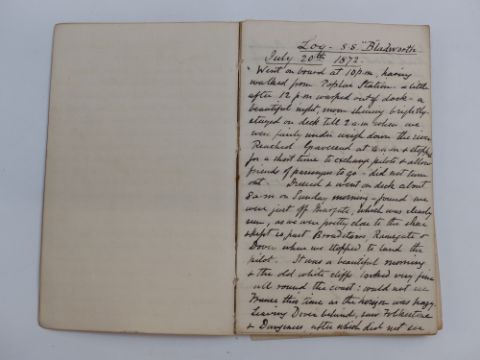 Log - S.S. "Bladworth
July 20th 1872.
Went on board at 10 p.m. having
walked from Poplar Station. a little
after 12 p.m warped out of dock - a
beautiful night, moon shining brightly.
stayed on deck till 2 a.m when we
were fairly under weigh down the river
Reached Gravesend at 4 a.m & stopped
for a short time to exchange pilots & allow
friends of passengers to go - did not turn
out - Dressed & went on deck about
8 a.m on Sunday morning - found we
were just off Margate, which was clearly
seen, as we were pretty close to the shore
& kept so past Broadstairs, Ramsgate &
Dover where we stopped to land the
pilot. It was a beautiful morning
& the old white cliffs looked very fine
all round the coast: could not see
France this time as the horizon was hazy.
Leaving Dover behind, saw Folkestone
& Dungeness after which did not see